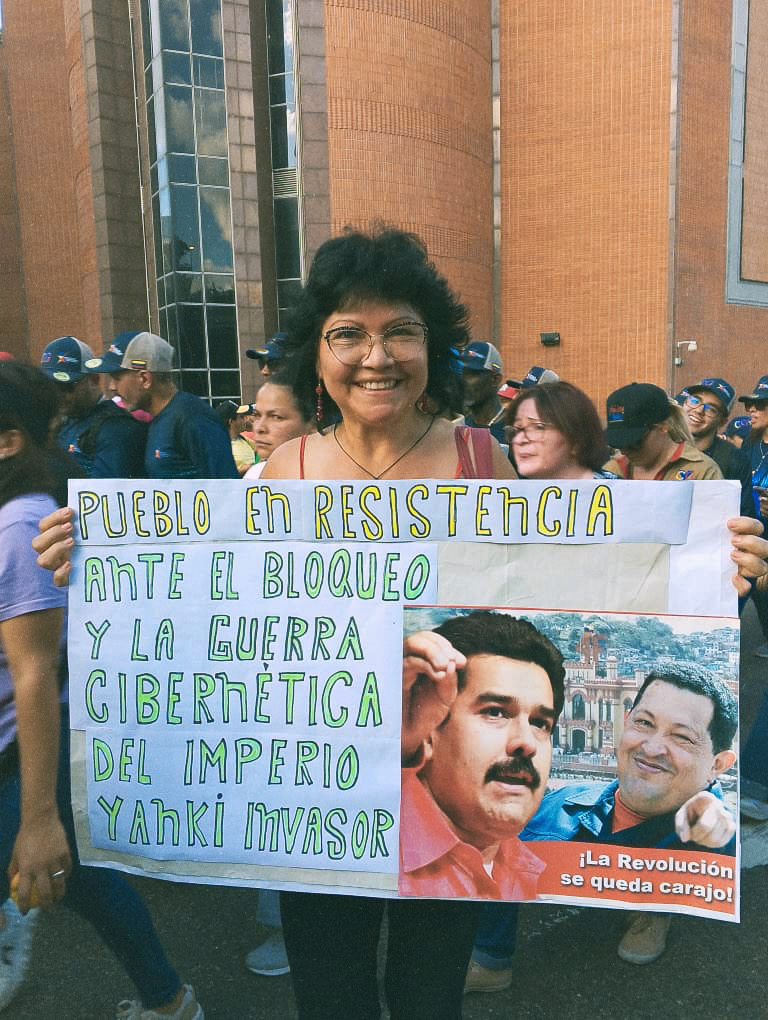 PUEBLO En RESISTEnCIA
AnTE EL BLOQUEO
Y LA GUERRA
CIBERnÈTICA
DEL IMPERIO
YAnKi InVASOR
¡La Revolución
se queda carajo!